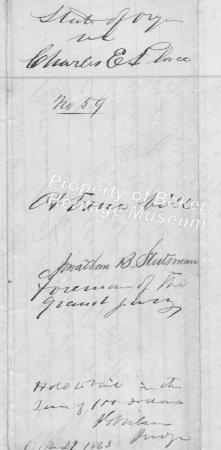 State of Oregon
vs
Charles E. Place
No 59
A True bill
Property of Baker
Heritage Museum
Jonathan B. Slutsman
Foreman of the
Grand Jury
Hold to Bail in the
Sum of dollars
Judge
Oct 29 1863